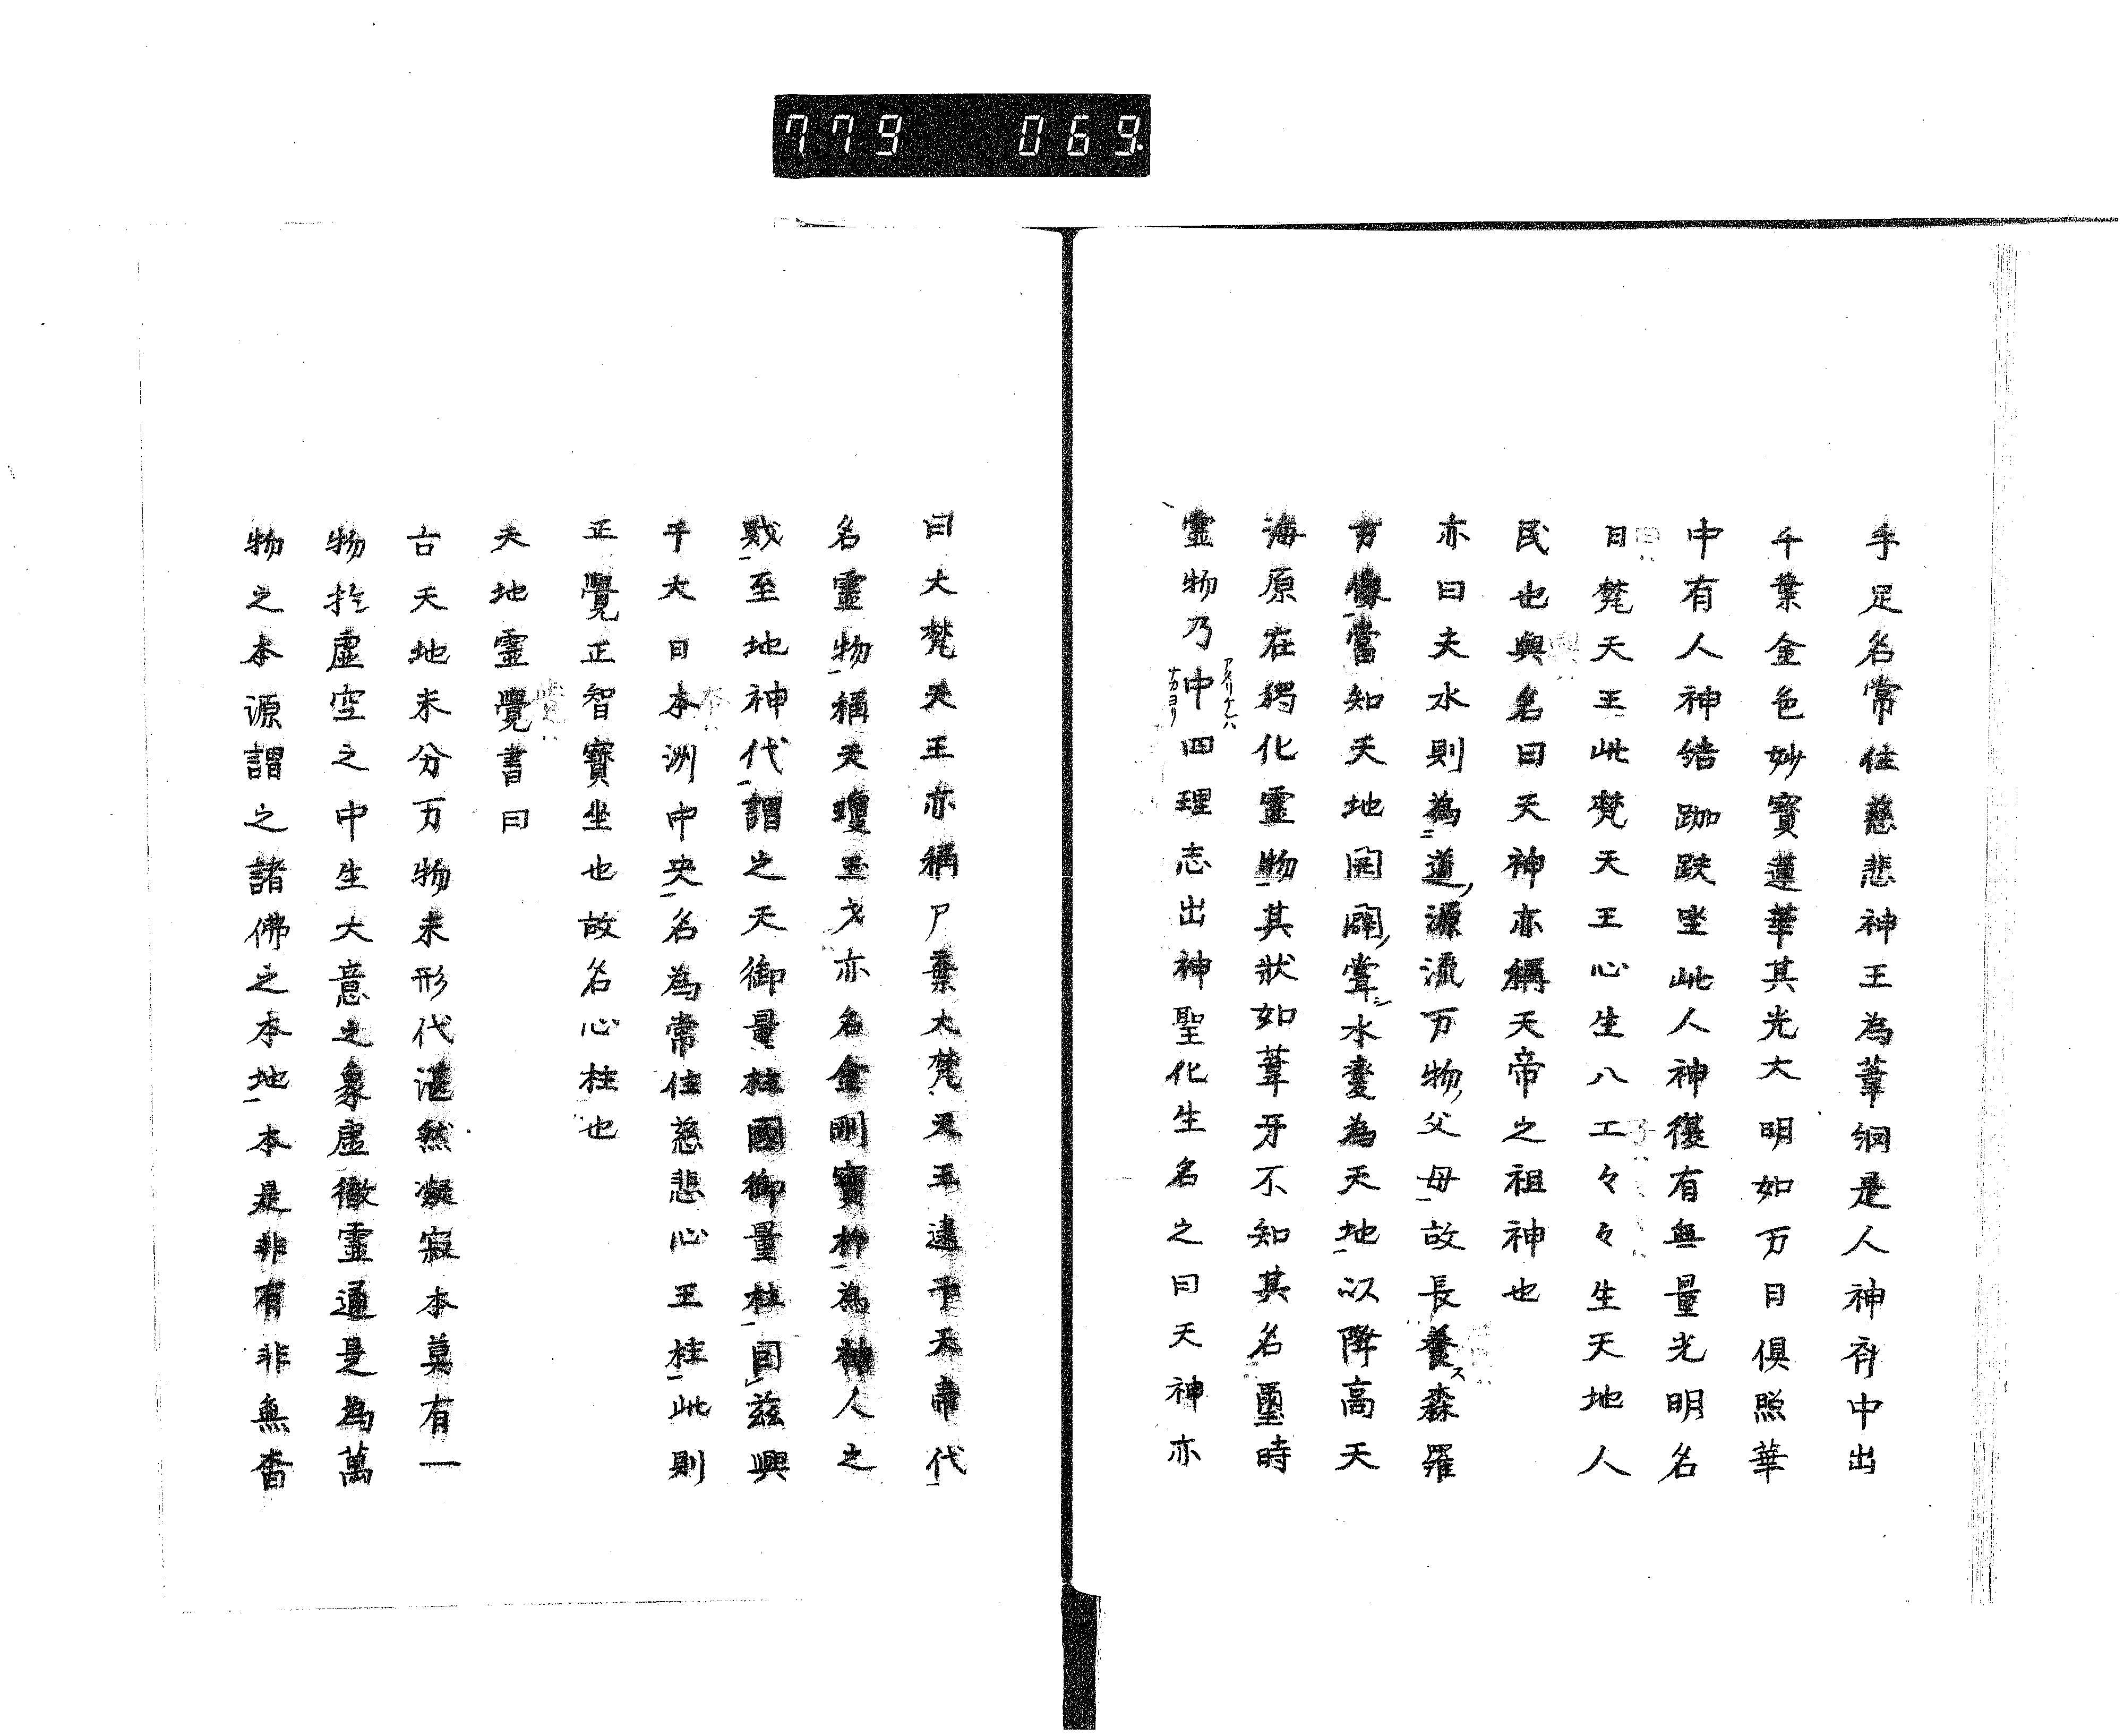 779 069
手足名常住慈悲神王為葦綱是人神齊中出
千葉金色妙寳蓮華其光大明如万日俱照華
中有人神結跏趺坐此人神復有無量光明名
曰梵天王此梵天王心生八工々々生天地人
民也與名曰天神亦稱天帝之祖神也
亦曰夫水則為道源流万物父母故長養森羅
万像當知天地開闢甞水變為天地以降高天
海原在獨化靈物其狀如葦牙不知其名爾時
靈物乃中四理志出神聖化生名之曰天神亦
曰大梵天王亦稱尸棄大梵天王逮于天帝代
名靈物稱天瓊玉戈亦名金剛寳杵為神人之
戝至地神代謂之天御量柱國御量柱自茲興
于大日本洲中央名為常住慈悲心王柱此則
正覺正智寳坐也故名心柱也
天地靈覺書曰
古天地未分万物未形代湛然凝寂本莫有一
物於虛空之中生大意之象虛徹靈通是為萬
物之本源謂之諸佛之本地本是非有非無杳